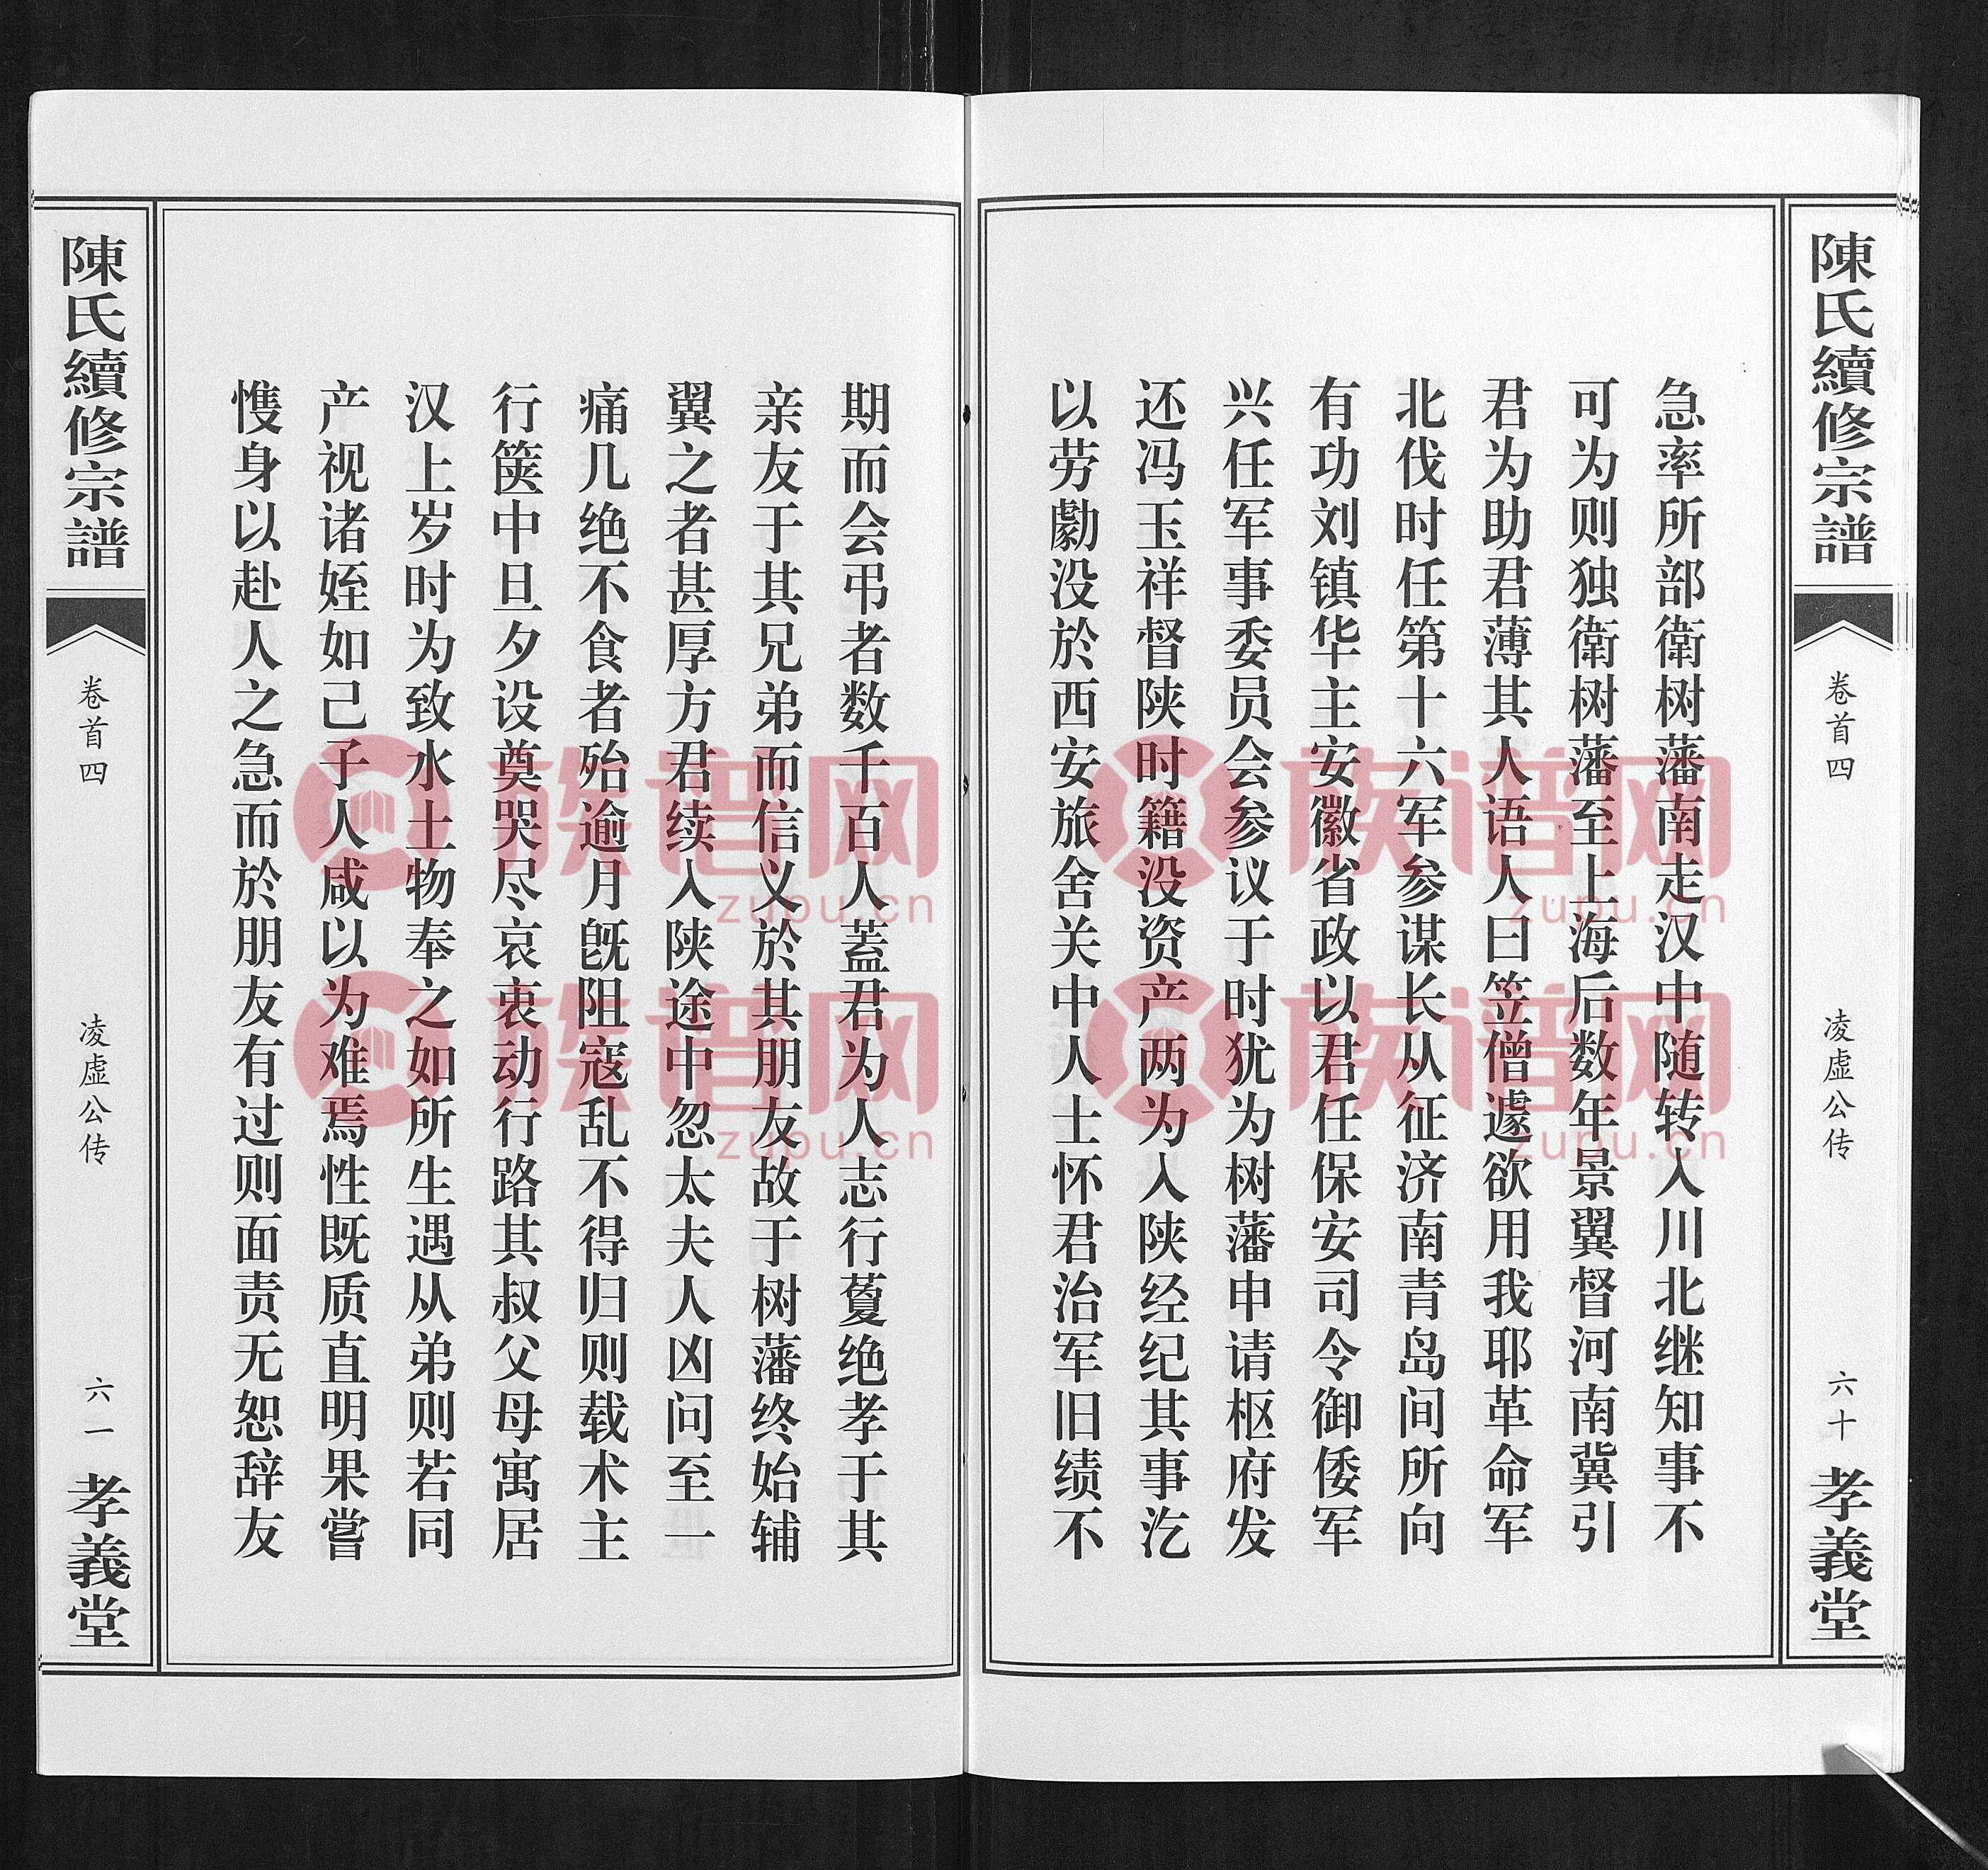 陳氏續修宗譜
卷首四
凌虚公传
六十
孝義堂
急率所部衛树藩南走汉中随转入川北继知事不
可为则独衛树藩至上海后数年景翼督河南冀引
君为助君薄其人语人曰笠僧遽欲用我耶革命军
北伐时任第十六军参谋长从征济南青岛间所向
有功刘镇华主安徽省政以君任保安司令御倭军
兴任军事委员会参议于时犹为树藩申请枢府发
还冯玉祥督陕时籍没资产两为入陕经纪其事汔
以劳勩没於西安旅舍关中人士怀君治军旧绩不
期而会弔者数千百人蓋君为人志行敻绝孝于其
亲友于其兄弟而信义於其朋友故于树藩终始辅
翼之者甚厚方君续入陕途中忽太夫人凶问至一
痛几绝不食者殆逾月既阻寇乱不得归则载术主
行箧中旦夕设奠哭尽哀衷动行路其叔父母寓居
汉上岁时为致水土物奉之如所生遇从弟则若同
产视诸姪如己子人咸以为难焉性既质直明果嘗
愯身以赴人之急而於朋友有过则面责无恕辞友
陳氏續修宗譜
卷首四
凌虚公传
六一
孝義堂
族谱网
zupu.cn
族谱网
zupu.cn
族谱网
zupu.cn
族谱网
zupu.cn